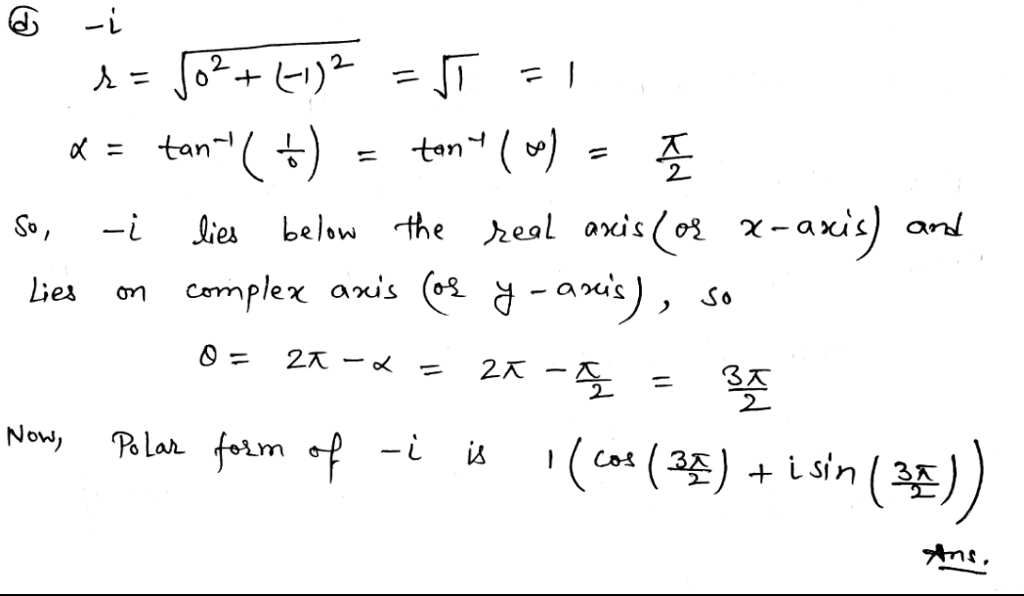 (d) -i
r = √(0² + (-1)²) = √1 = 1
α = tan⁻¹(1/0) = tan⁻¹(∞) = π/2
So, -i lies below the real axis (or x-axis) and
Lies on complex axis (or y-axis), so
θ = 2π - α = 2π - π/2 = 3π/2
Now, Polar form of -i is 1(cos(3π/2) + i sin(3π/2))
Ans.